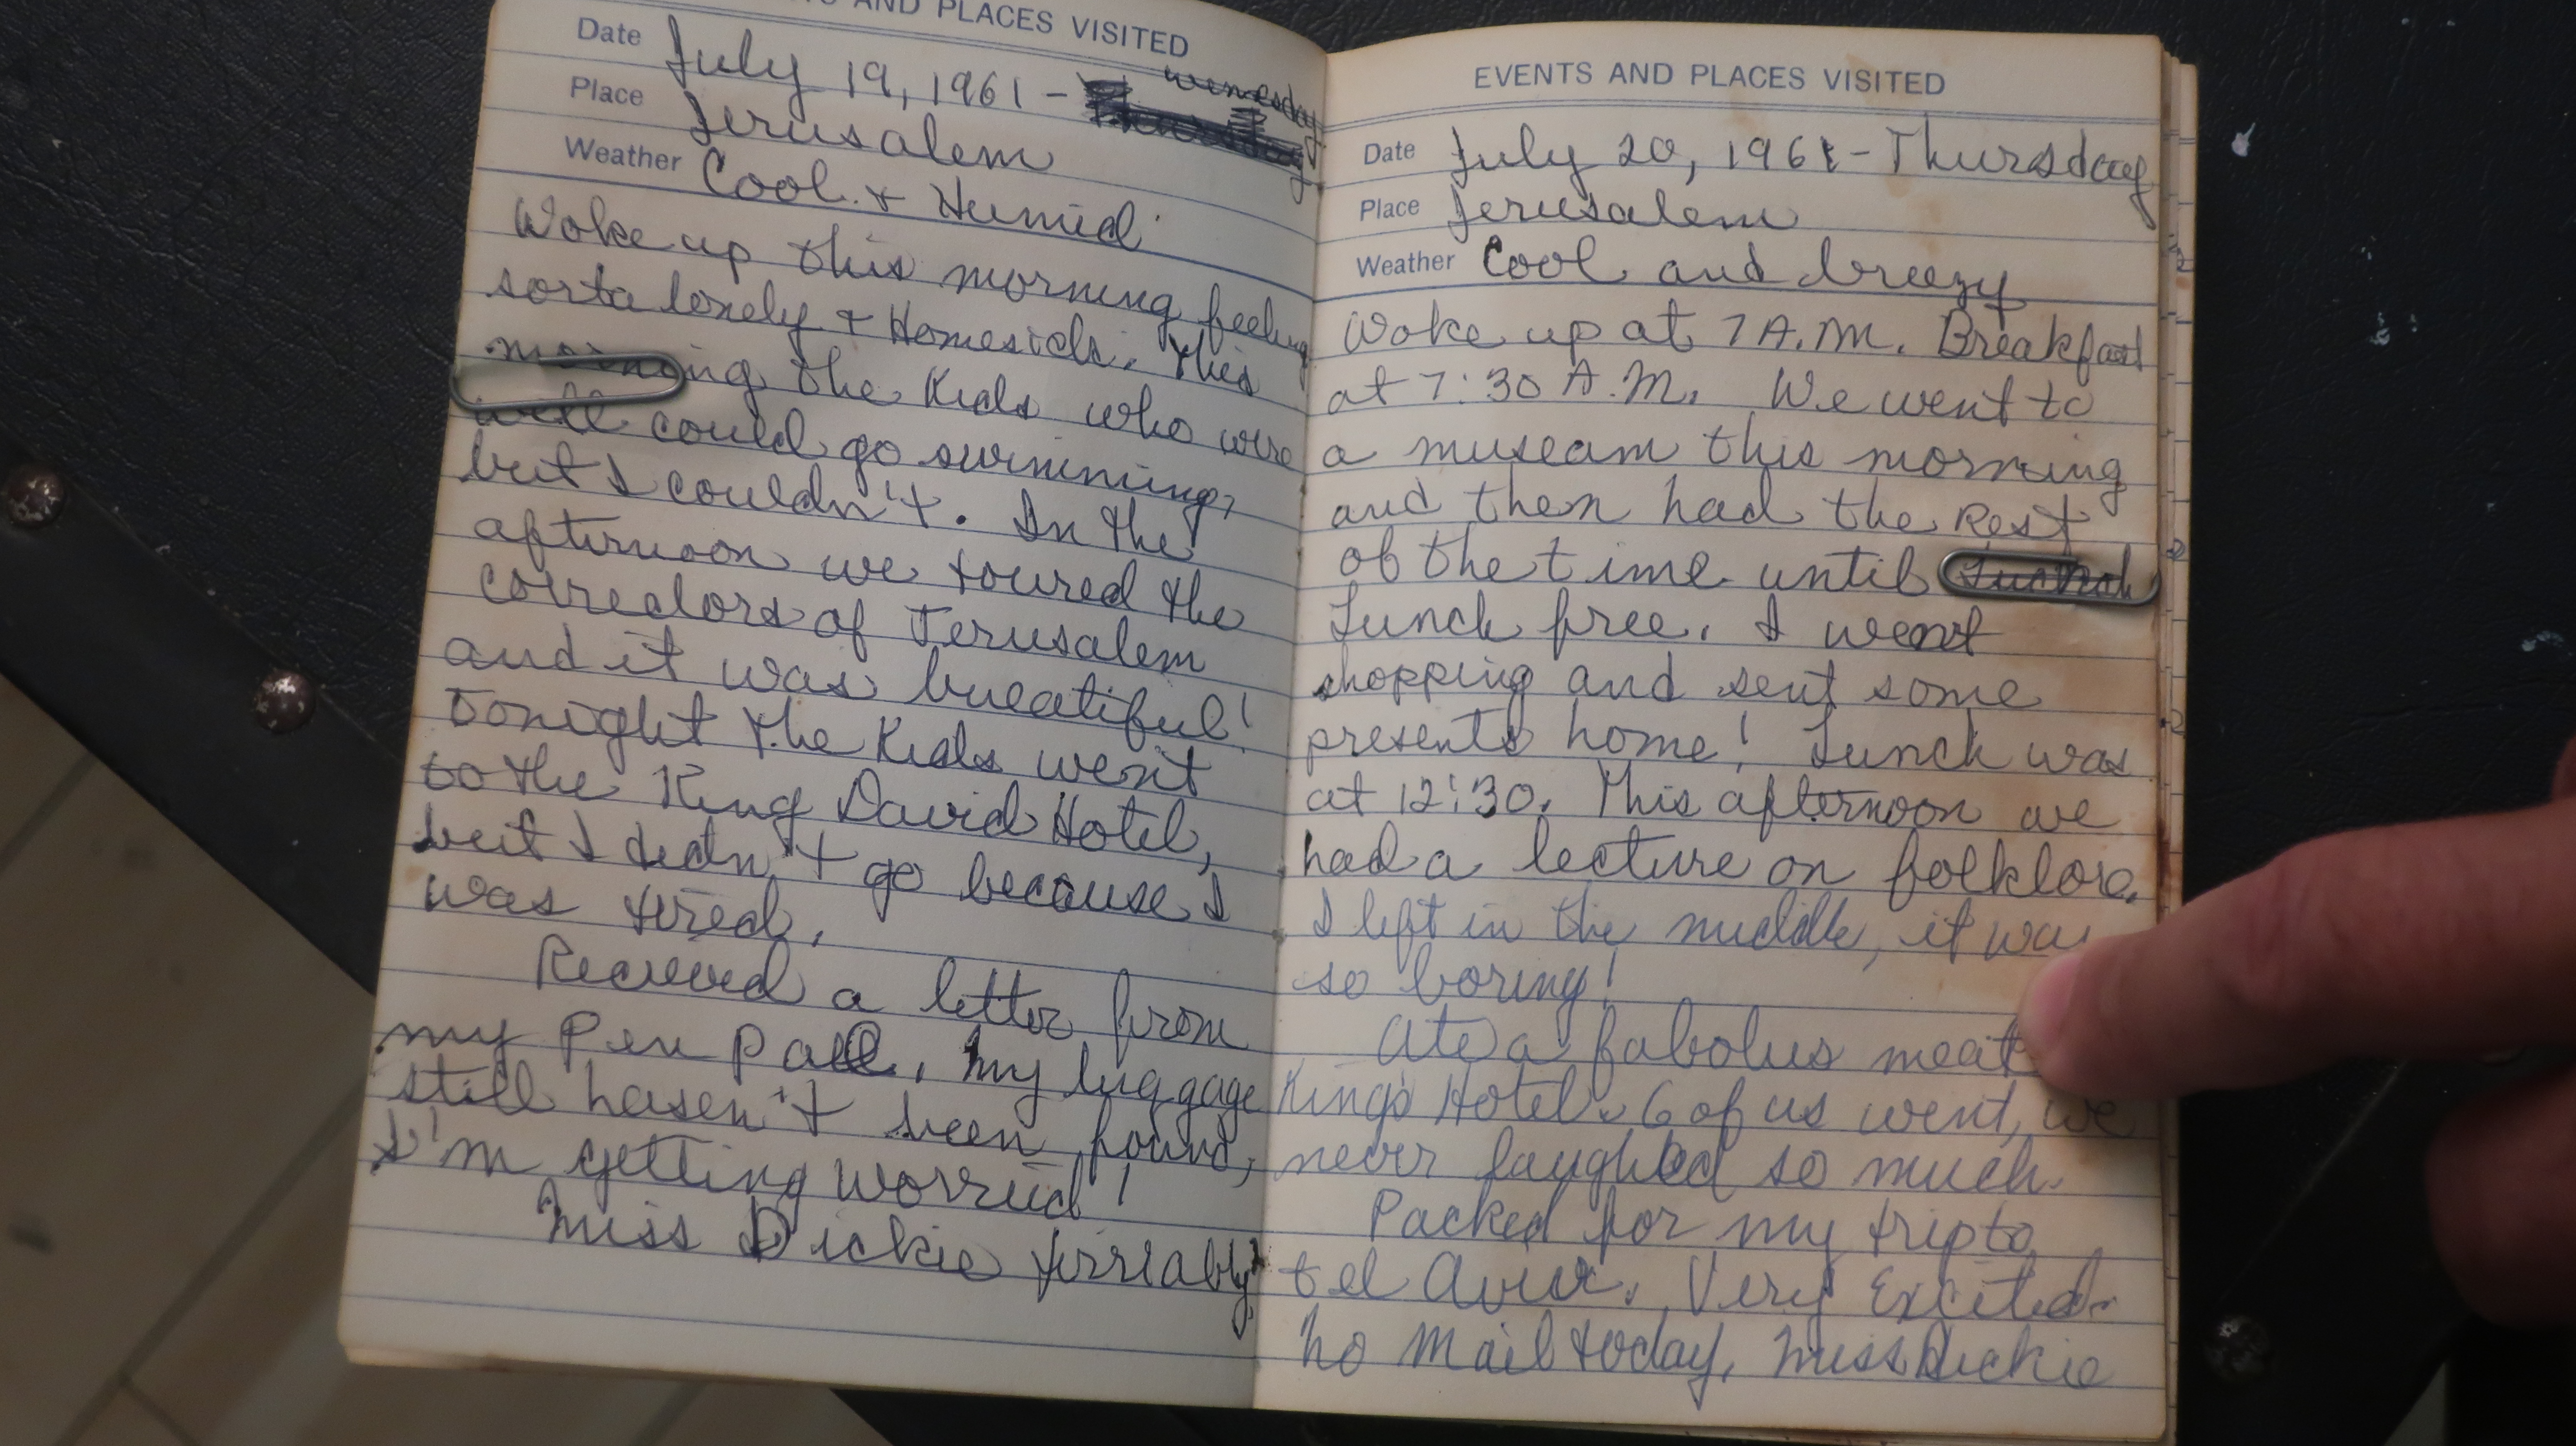 TS AND PLACES VISITED
Date July 19, 1961 - Thursday wensday
Place Jerusalem
Weather Cool & Humid
Woke up this morning feeling
sorta lonely & Homesick. This
morning the Kids who were
well could go swimming,
but I couldn't. In the
afternoon we toured the
corredors of Jerusalem
and it was bueatiful!
Tonight the Kids went
to the King David Hotel,
but I didn't go because I
was tired.
Recieved a letter from
my Pen Pall, My luggage
still hasen't been found,
I'm getting worried!
Miss Dickie terriably
EVENTS AND PLACES VISITED
Date July 20, 1961 - Thursday
Place Jerusalem
Weather Cool and breezy
Woke up at 7 A.M. Breakfast
at 7:30 A.M. We went to
a museam this morning
and then had the Rest
of the time until
Lunch free. I went
shopping and sent some
presents home! Lunch was
at 12:30. This afternoon we
had a lecture on folklore.
I left in the middle, it was
so boring!
Ate a fabolus meat
Kings Hotel. 6 of us went, we
never laughed so much.
Packed for my trip to
tel Aviv. Very Excited.
No Mail today, Miss Dickie